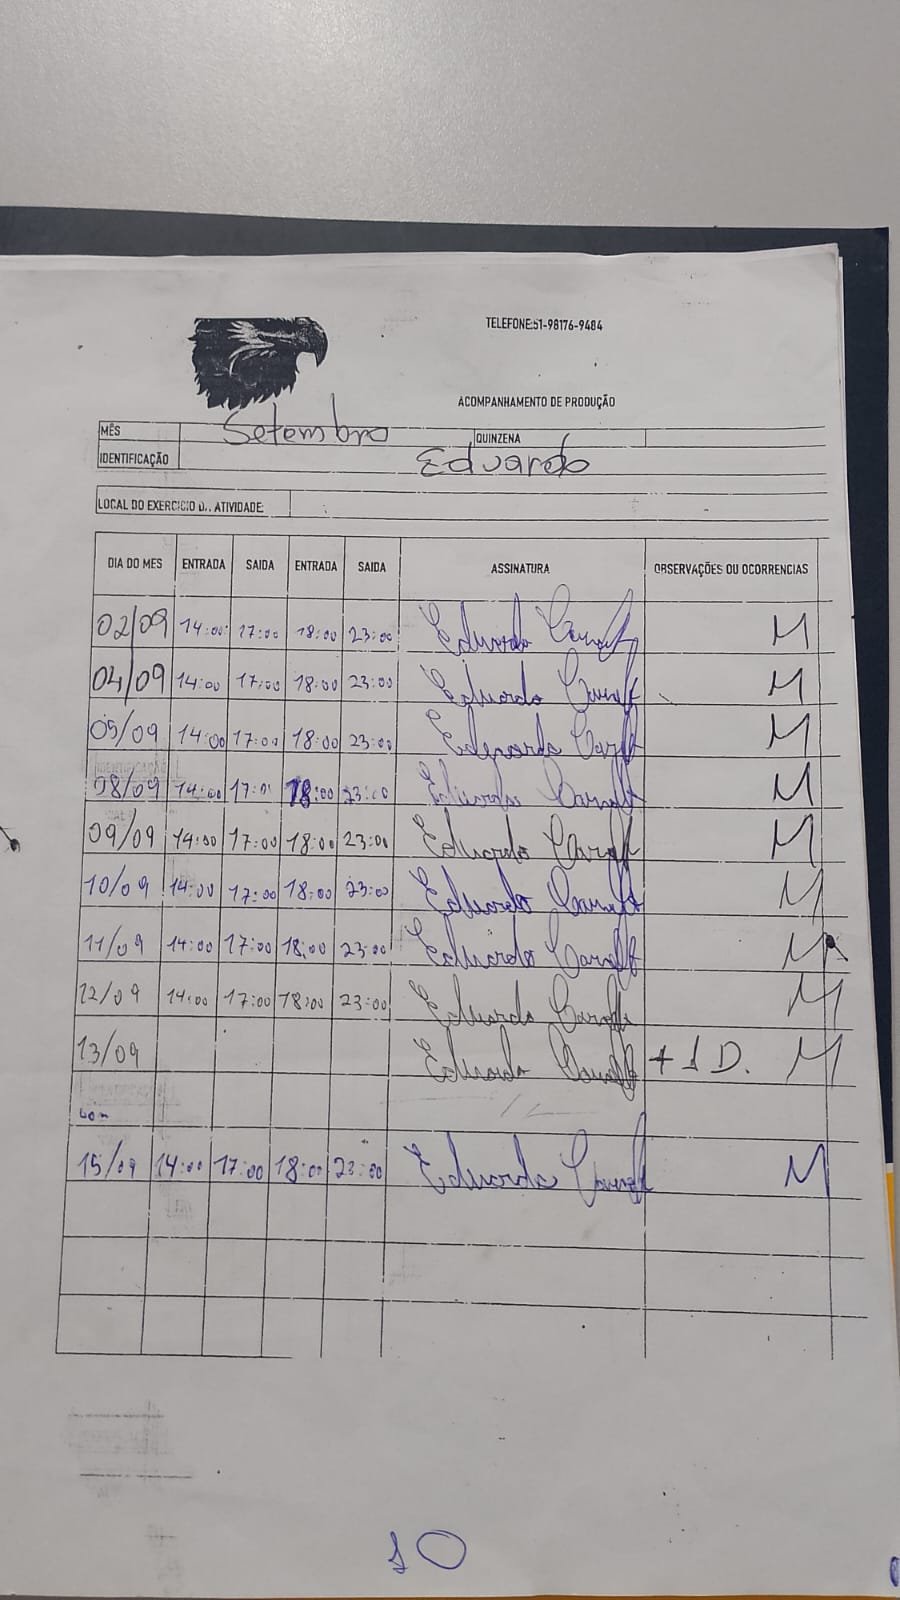 TELEFONE:51-98176-9484
ACOMPANHAMENTO DE PRODUÇÃO
MÊS Setembro QUINZENA
IDENTIFICAÇÃO Eduardo
LOCAL DO EXERCICIO D.. ATIVIDADE:
DIA DO MES ENTRADA SAIDA ENTRADA SAIDA ASSINATURA OBSERVAÇÕES OU OCORRENCIAS
02/09 14:00 17:00 18:00 23:00 Eduardo M
04/09 14:00 17:00 18:00 23:00 Eduardo M
05/09 14:00 17:00 18:00 23:00 Eduardo M
08/09 14:00 17:00 18:00 23:00 Eduardo M
09/09 14:00 17:00 18:00 23:00 Eduardo M
10/09 14:00 17:00 18:00 23:00 Eduardo M
11/09 14:00 17:00 18:00 23:00 Eduardo M
12/09 14:00 17:00 18:00 23:00 Eduardo M
13/09 Eduardo + 1 D. M
15/09 14:00 17:00 18:00 23:00 Eduardo M
10